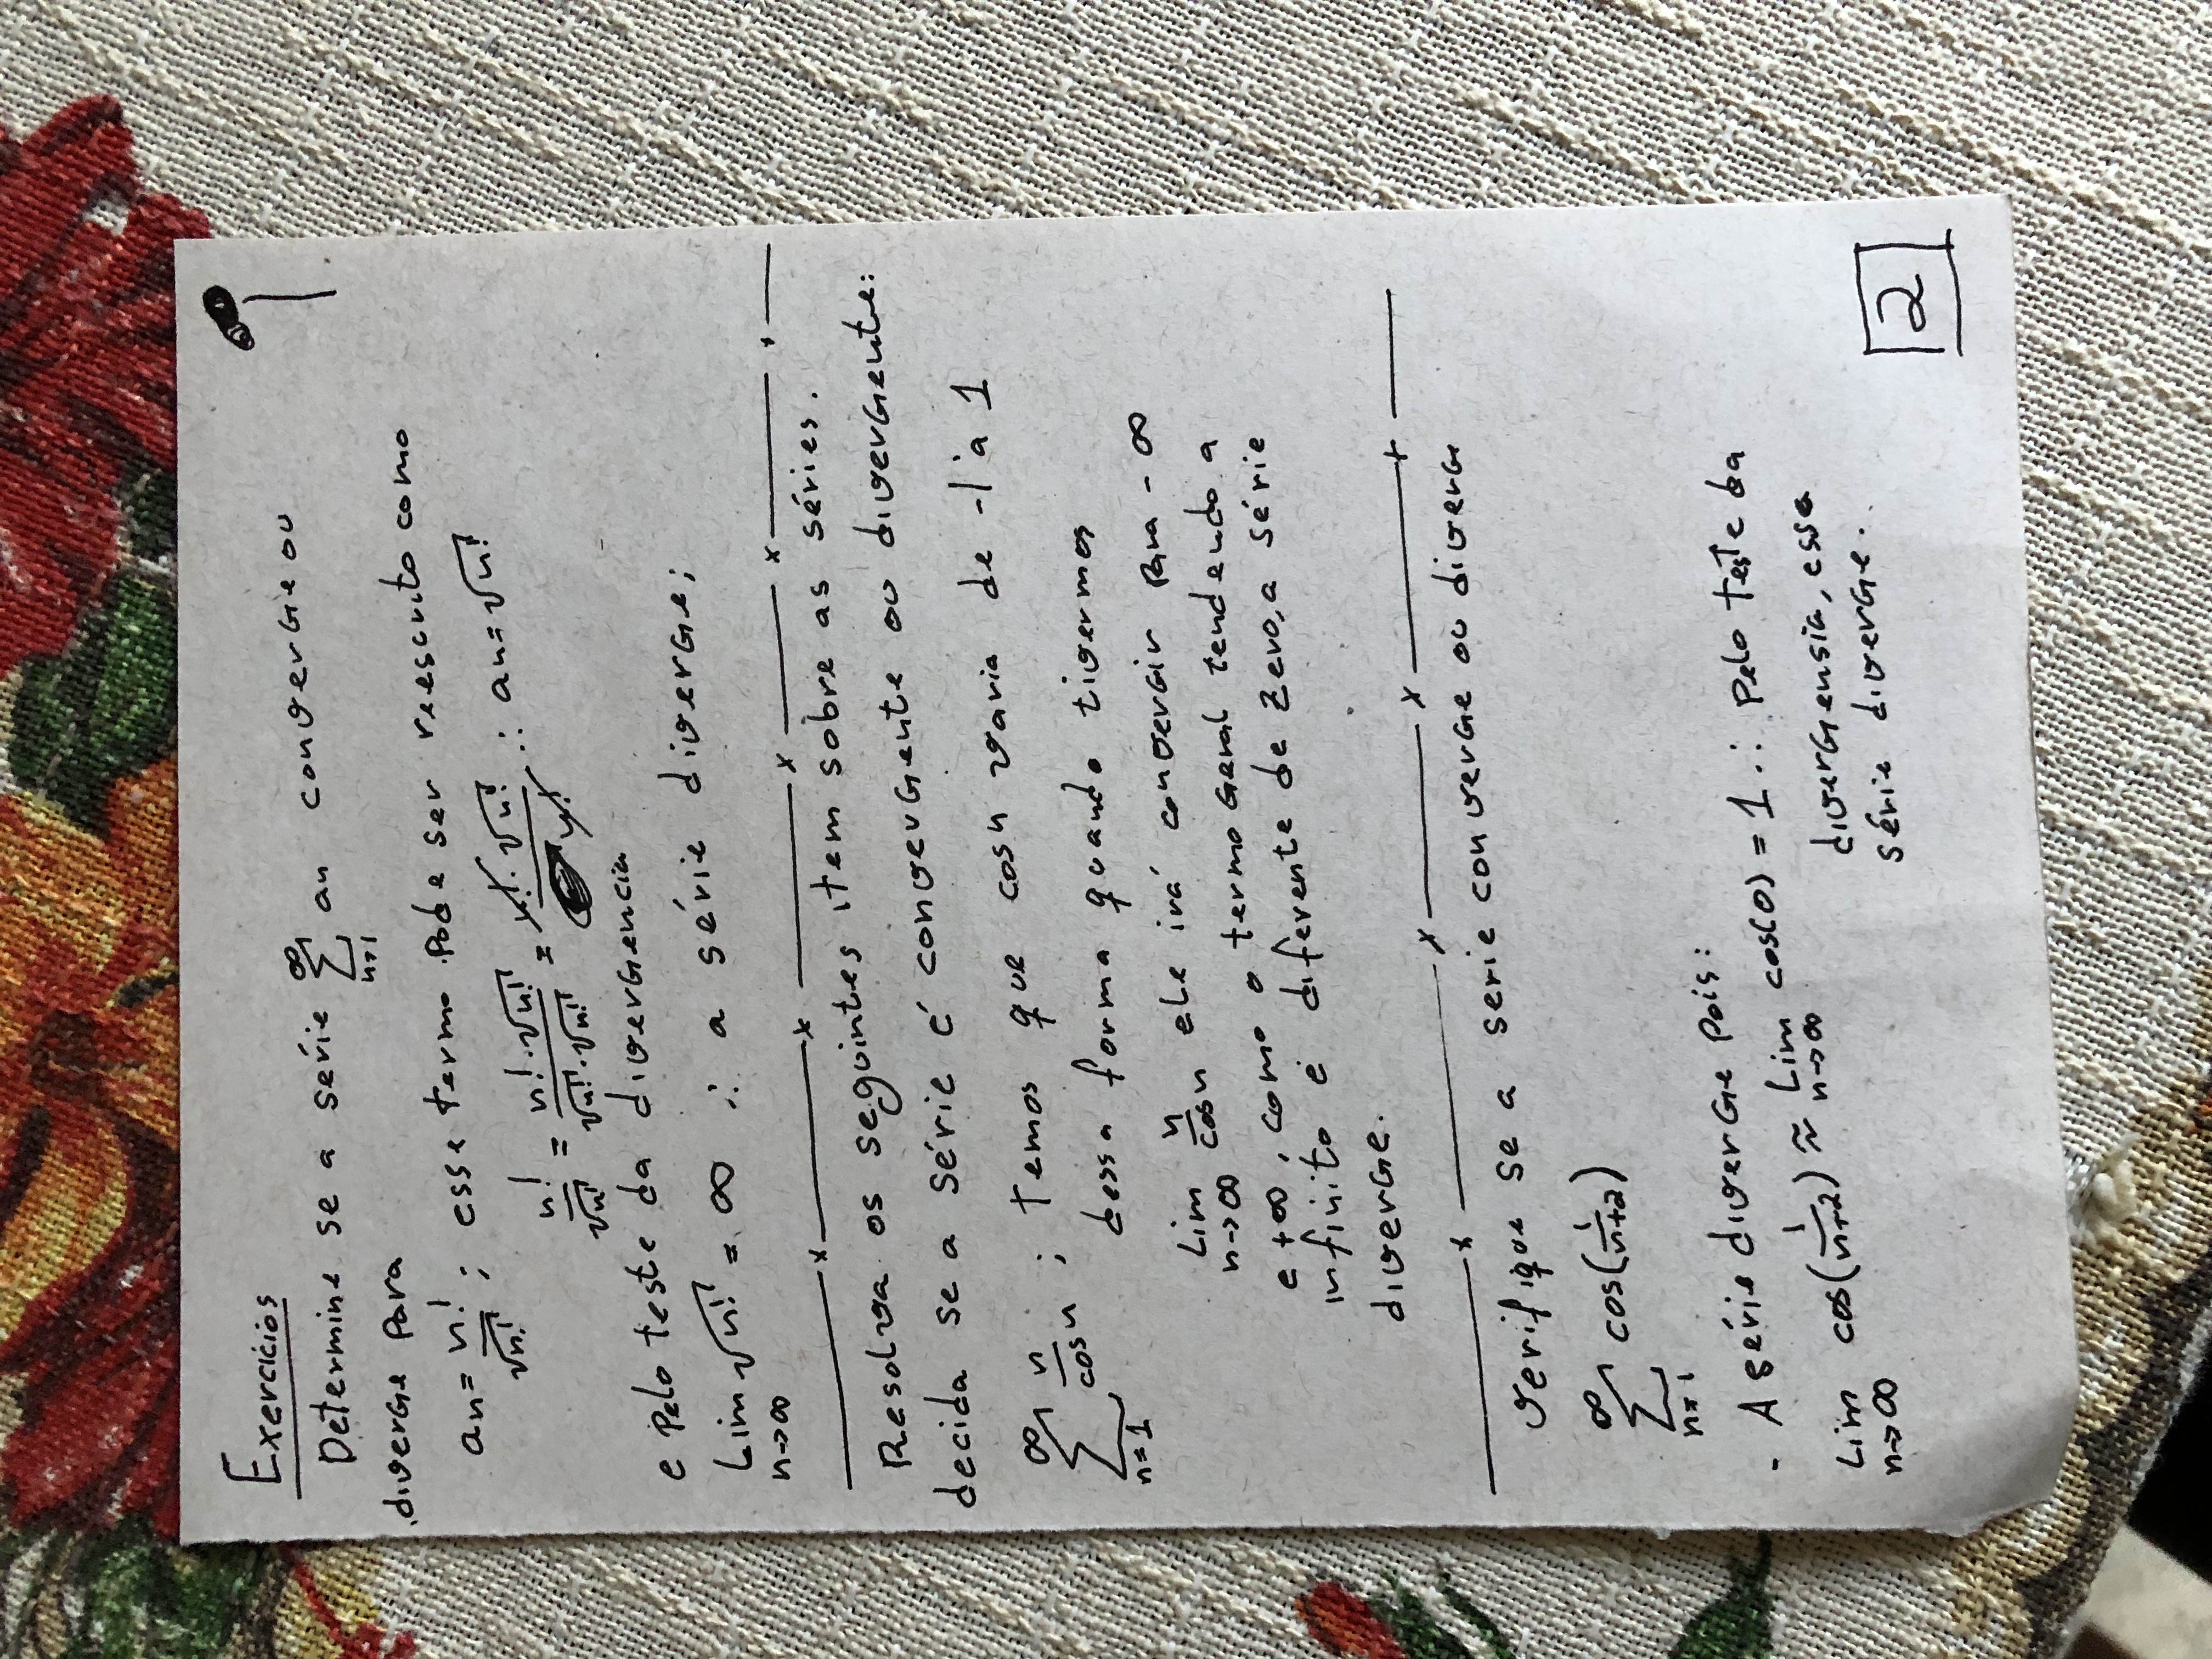 Exercícios
1
Determine se a série ∞∑n=1 an converge ou
diverge para
an = n!/√n! ; esse termo pode ser reescrito como
n!/√n! = n!·√n!/√n!·√n! = n!·√n!/n! ∴ an = √n!
e pelo teste da divergencia
Lim n→∞ √n! = ∞ ∴ a série diverge;
Resolva os seguintes item sobre as séries.
decida se a série é convergente ou divergente:
∞∑n=1 n/cosn ; temos que cosn varia de -1 a 1
dessa forma quando tivermos
Lim n→∞ n/cosn ele irá convergir para -∞
e +∞, como o termo geral tendendo a
infinito é diferente de zero, a série
diverge.
Verifique se a serie converge ou diverg
∞∑n=1 cos(1/n+2)
- A série diverge pois:
Lim n→∞ cos(1/n+2) ≈ Lim n→∞ cos(0) = 1 ∴ pelo teste da
divergensia, essa
série diverge.
2